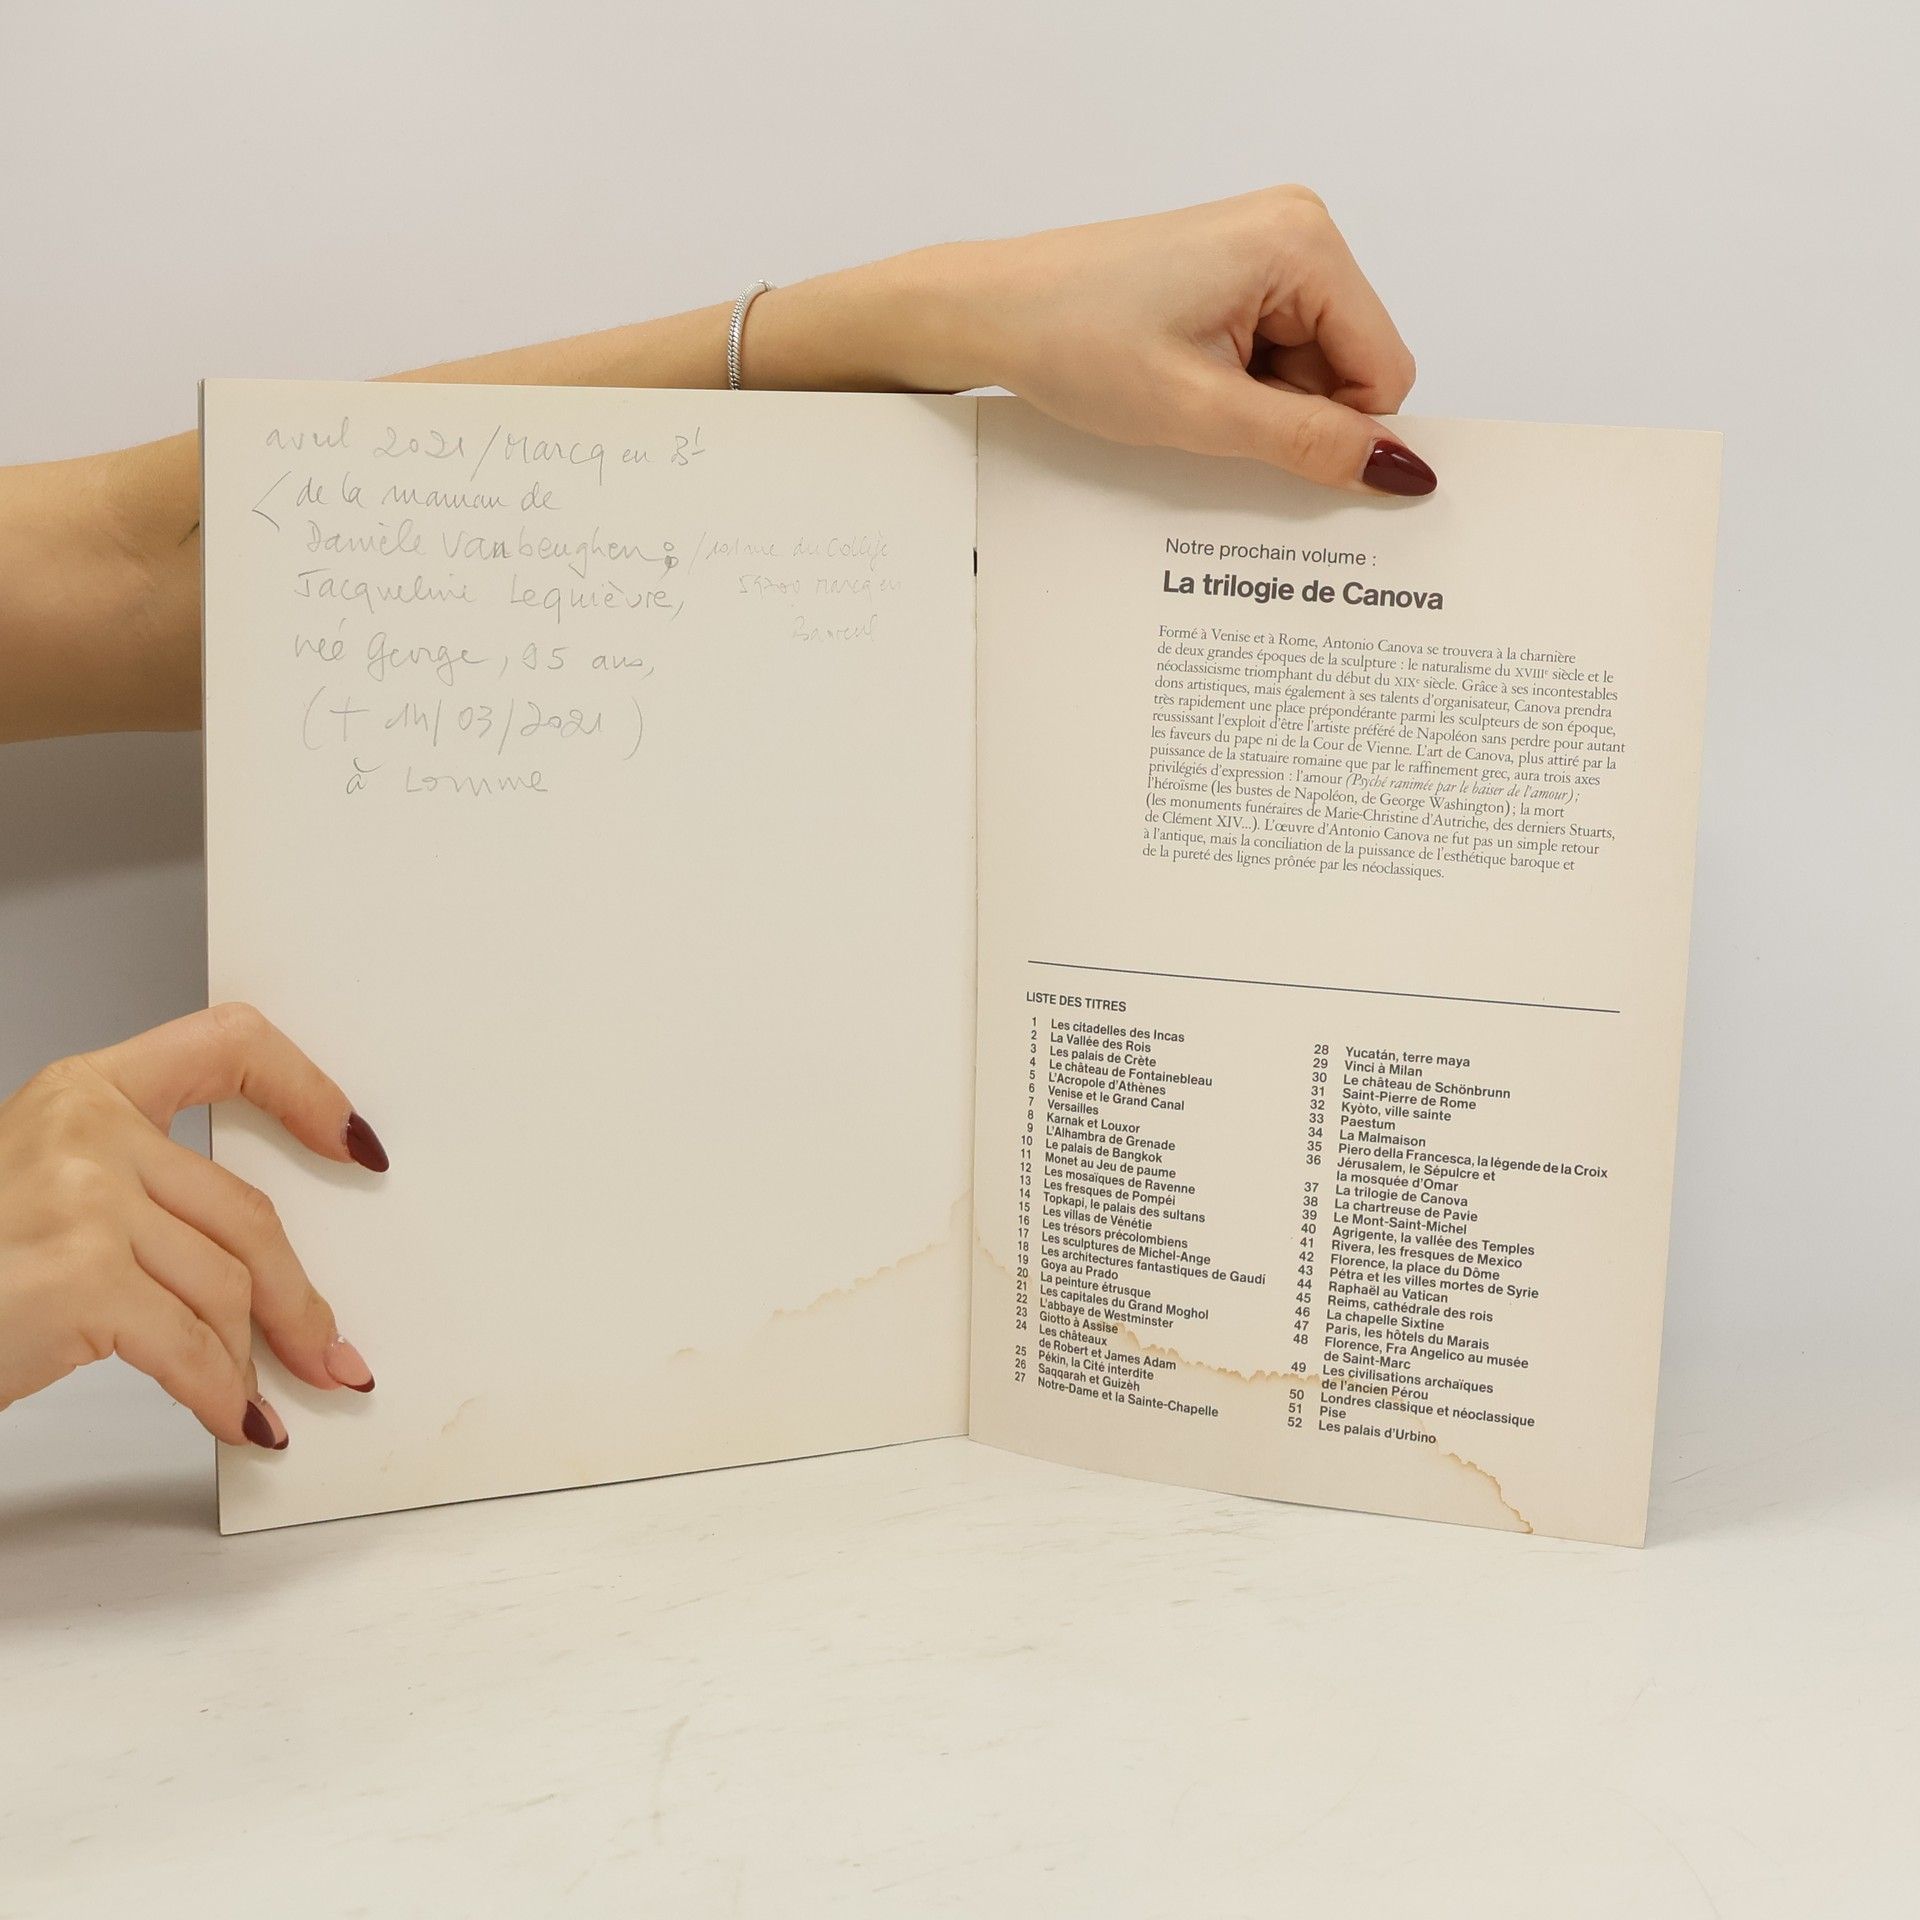 avril 2021 / Marcq en Bl
< de la maman de
Danièle Vanbeughen ; / rue du Collège
59700 Marcq en
Baroeul
Jacqueline Lequièvre,
née George, 95 ans,
(+ 14/03/2021)
à Lomme
Notre prochain volume :
La trilogie de Canova
Formé à Venise et à Rome, Antonio Canova se trouvera à la charnière
de deux grandes époques de la sculpture : le naturalisme du XVIIIe siècle et le
néoclassicisme triomphant du début du XIXe siècle. Grâce à ses incontestables
dons artistiques, mais également à ses talents d'organisateur, Canova prendra
très rapidement une place prépondérante parmi les sculpteurs de son époque,
réussissant l'exploit d'être l'artiste préféré de Napoléon sans perdre pour autant
les faveurs du pape ni de la Cour de Vienne. L'art de Canova, plus attiré par la
puissance de la statuaire romaine que par le raffinement grec, aura trois axes
privilégiés d'expression : l'amour (Psyché ranimée par le baiser de l'amour) ;
l'héroïsme (les bustes de Napoléon, de George Washington) ; la mort
(les monuments funéraires de Marie-Christine d'Autriche, des derniers Stuarts,
de Clément XIV...). L'œuvre d'Antonio Canova ne fut pas un simple retour
à l'antique, mais la conciliation de la puissance de l'esthétique baroque et
de la pureté des lignes prônée par les néoclassiques.
LISTE DES TITRES
1 Les citadelles des Incas
2 La Vallée des Rois
3 Les palais de Crète
4 Le château de Fontainebleau
5 L'Acropole d'Athènes
6 Venise et le Grand Canal
7 Versailles
8 Karnak et Louxor
9 L'Alhambra de Grenade
10 Le palais de Bangkok
11 Monet au Jeu de paume
12 Les mosaïques de Ravenne
13 Les fresques de Pompéi
14 Topkapi, le palais des sultans
15 Les villas de Vénétie
16 Les trésors précolombiens
17 Les sculptures de Michel-Ange
18 Les architectures fantastiques de Gaudí
19 Goya au Prado
20 La peinture étrusque
21 Les capitales du Grand Moghol
22 L'abbaye de Westminster
23 Giotto à Assise
24 Les châteaux
de Robert et James Adam
25 Pékin, la Cité interdite
26 Saqqarah et Guizèh
27 Notre-Dame et la Sainte-Chapelle
28 Yucatán, terre maya
29 Vinci à Milan
30 Le château de Schönbrunn
31 Saint-Pierre de Rome
32 Kyòto, ville sainte
33 Paestum
34 La Malmaison
35 Piero della Francesca, la légende de la Croix
36 Jérusalem, le Sépulcre et
la mosquée d'Omar
37 La trilogie de Canova
38 La chartreuse de Pavie
39 Le Mont-Saint-Michel
40 Agrigente, la vallée des Temples
41 Rivera, les fresques de Mexico
42 Florence, la place du Dôme
43 Pétra et les villes mortes de Syrie
44 Raphaël au Vatican
45 Reims, cathédrale des rois
46 La chapelle Sixtine
47 Paris, les hôtels du Marais
48 Florence, Fra Angelico au musée
de Saint-Marc
49 Les civilisations archaïques
de l'ancien Pérou
50 Londres classique et néoclassique
51 Pise
52 Les palais d'Urbino